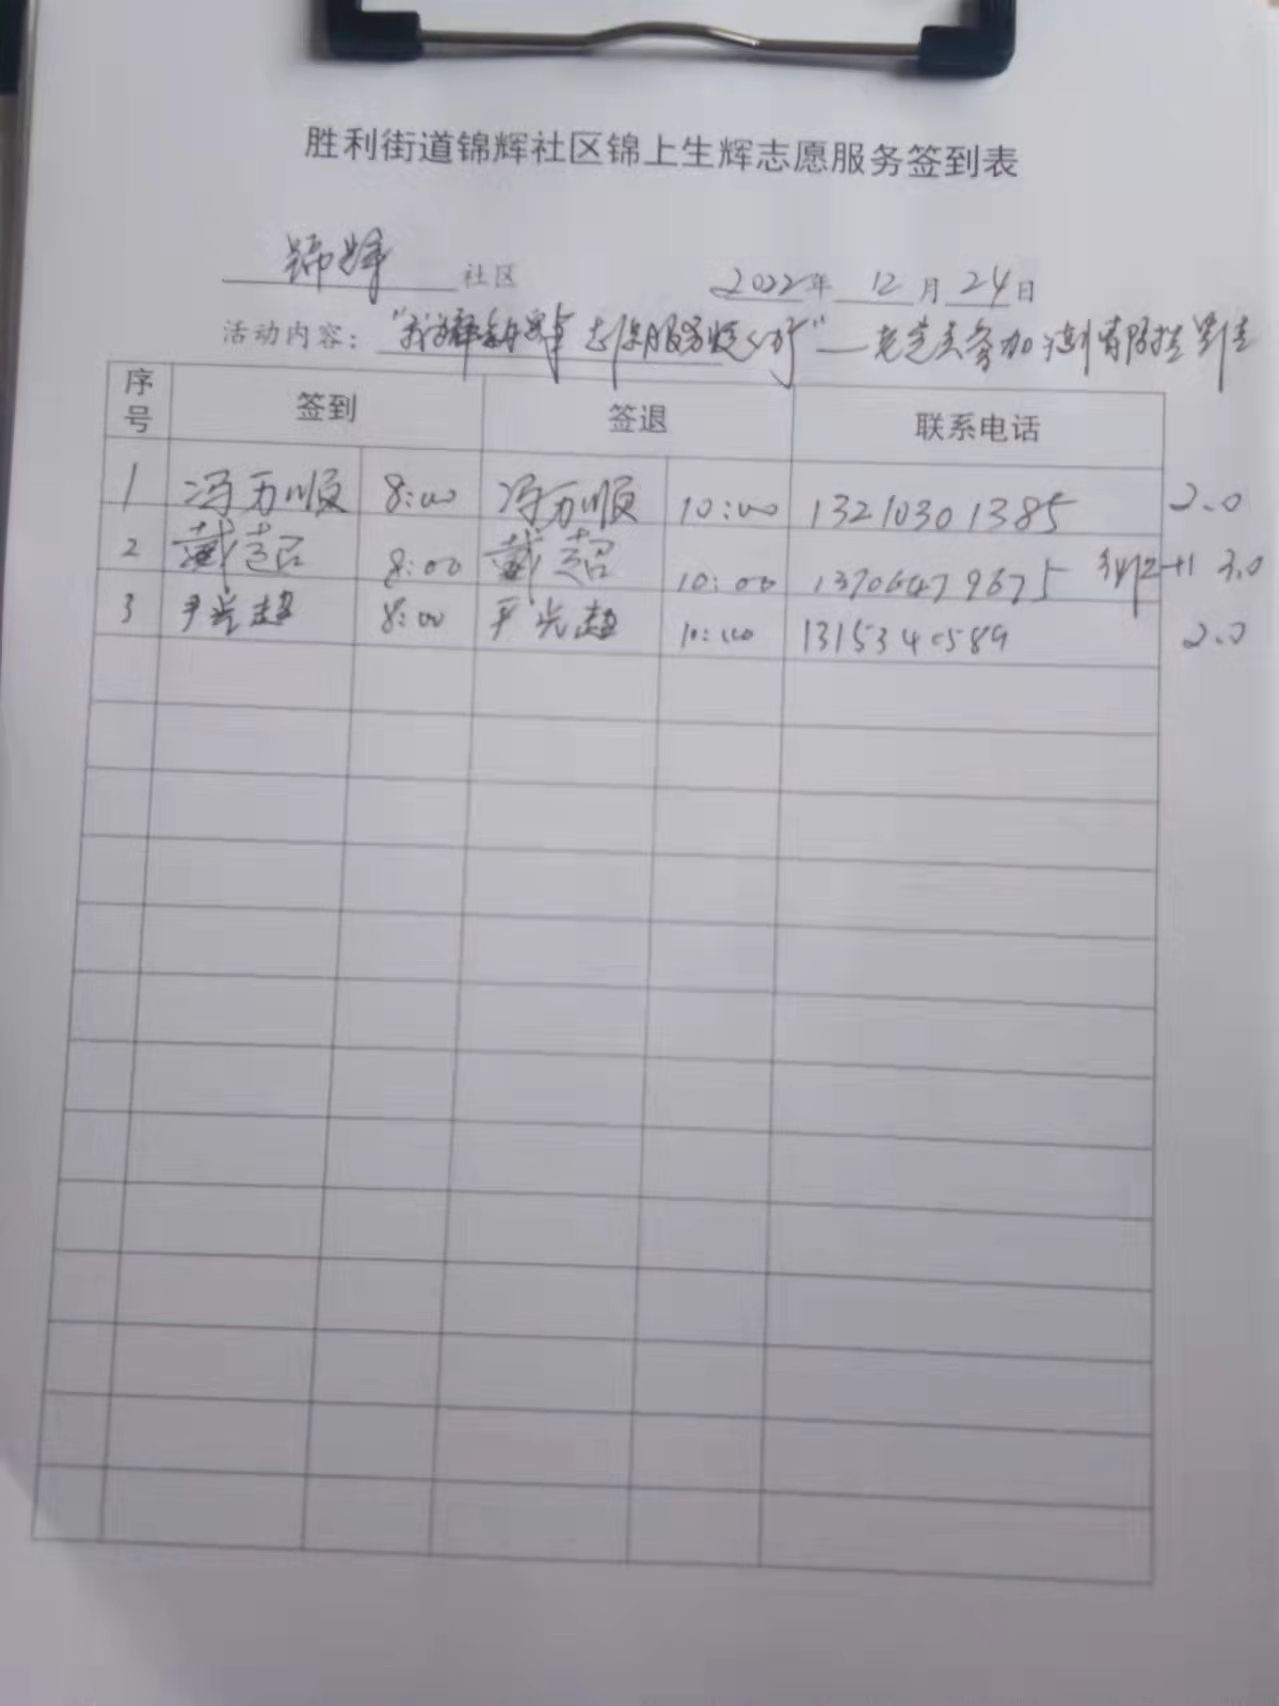 胜利街道锦辉社区锦上生辉志愿服务签到表
锦辉 社区 2022年 12月 24日
活动内容： 志愿服务 老党员参加
序号 签到 签退 联系电话
1 冯万顺 8:00 冯万顺 10:00 13210301385 2.0
2 戴超 8:00 戴超 10:00 13706479675 +1 3.0
3 光超 8:00 光超 10:00 2.0